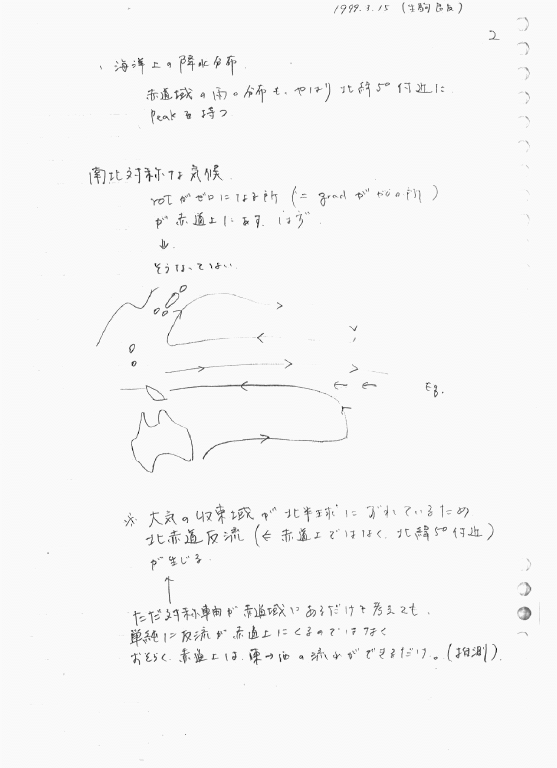 1999.3.15 (生駒
2
海洋上の降水分布
赤道域の雨の分布も、やはり北緯5°付近に
Peakを持つ
南北対称な気候
rotがゼロになる所 (= gradがゼロの所)
が赤道上にあるはず
↓
そうなっていない
Eq.
※ 大気の収束域が北半球にずれているため
北赤道反流 (← 赤道上ではなく、北緯5°付近)
が生じる
↑
ただ対称軸が赤道域にあるだけと考えても、
単純に反流が赤道上にくるのではなく
おそらく、赤道上は、東→西の流れができるだけ。(推測)